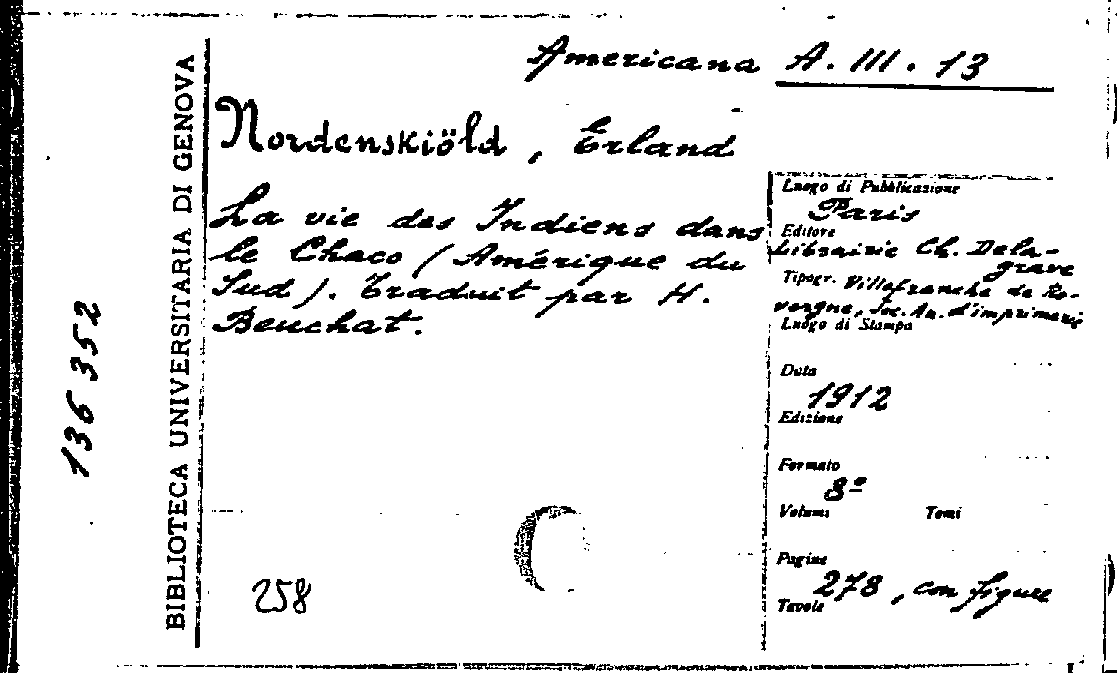 Americana A. III. 13
Nordenskiöld, Erland
La vie des Indiens dans
le Chaco (Amérique du
Sud). Traduit par H.
Beuchat.
Luogo di Pubblicazione
Paris
Editore
Librairie Ch. Dela-
grave
Tipogr. Villefranche de Ro-
vergne, Soc. An. d'imprimerie
Luogo di Stampa
Data
1912
Edizione
Formato
8º
Volumi Tomi
Pagine
278, con figure
Tavole
258
BIBLIOTECA UNIVERSITARIA DI GENOVA
136352